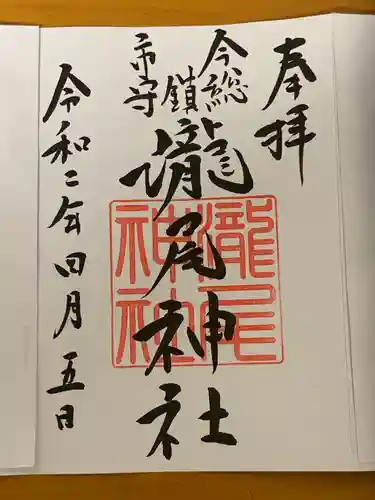 奉拝
今総鎮守
市
瀧尾神社
瀧尾神社
令和二年四月五日